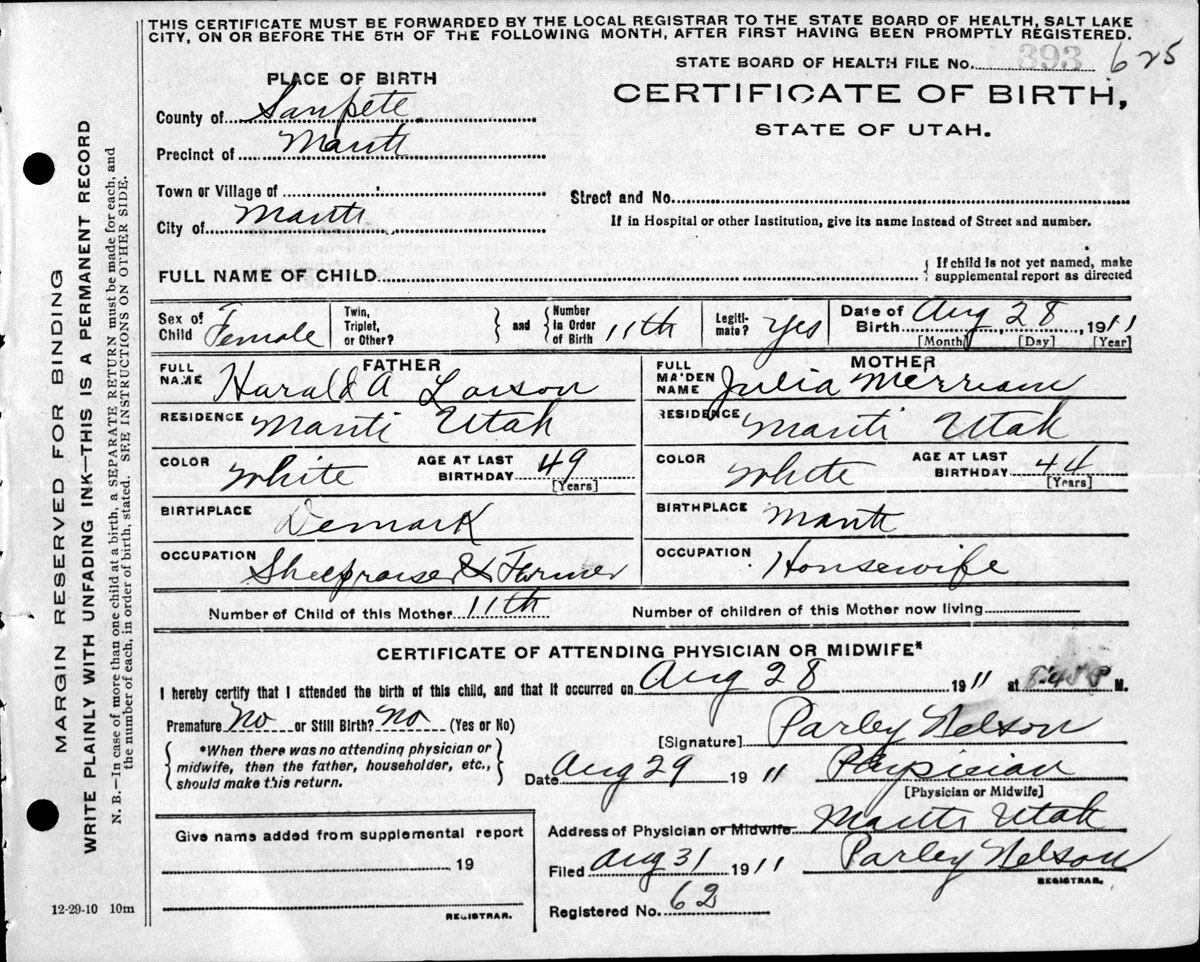 THIS CERTIFICATE MUST BE FORWARDED BY THE LOCAL REGISTRAR TO THE STATE BOARD OF HEALTH, SALT LAKE
CITY, ON OR BEFORE THE 5TH OF THE FOLLOWING MONTH, AFTER FIRST HAVING BEEN PROMPTLY REGISTERED.
STATE BOARD OF HEALTH FILE No. 393 625
PLACE OF BIRTH
CERTIFICATE OF BIRTH,
STATE OF UTAH.
County of Sanpete
Precinct of Manti
Town or Village of
Street and No.
City of Manti
If in Hospital or other Institution, give its name Instead of Street and number.
FULL NAME OF CHILD
{ If child is not yet named, make
supplemental report as directed
Sex of Child Female
Twin, Triplet, or Other? } and { Number in Order of Birth 11th
Legiti-mate? Yes
Date of Birth Aug 28, 1911
[Month] [Day] [Year]
FATHER
FULL NAME Harald A Larson
RESIDENCE Manti Utah
COLOR White AGE AT LAST BIRTHDAY 49
[Years]
BIRTHPLACE Demark
OCCUPATION Sheepraiser & Farmer
MOTHER
FULL MAIDEN NAME Julia Merriam
RESIDENCE Manti Utah
COLOR White AGE AT LAST BIRTHDAY 44
[Years]
BIRTHPLACE Manti
OCCUPATION Housewife
Number of Child of this Mother 11th Number of children of this Mother now living
CERTIFICATE OF ATTENDING PHYSICIAN OR MIDWIFE*
I hereby certify that I attended the birth of this child, and that it occurred on Aug 28 1911 at P M.
Premature No or Still Birth? No (Yes or No)
{ *When there was no attending physician or
midwife, then the father, householder, etc.,
should make this return. }
[Signature] Parley Nelson
Date Aug 29 1911 Physician
[Physician or Midwife]
Address of Physician or Midwife Manti Utah
Filed Aug 31 1911 Parley Nelson
REGISTRAR.
Registered No. 62
Give name added from supplemental report
19
REGISTRAR.
12-29-10 10m
MARGIN RESERVED FOR BINDING
WRITE PLAINLY WITH UNFADING INK—THIS IS A PERMANENT RECORD
N. B.—In case of more than one child at a birth, a SEPARATE RETURN must be made for each, and
the number of each, in order of birth, stated. SEE INSTRUCTIONS ON OTHER SIDE.